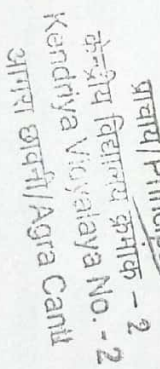 प्राचार्य/Principal
केन्द्रीय विद्यालय क्रमांक - 2
Kendriya Vidyalaya No. - 2
आगरा छावनी/Agra Cantt